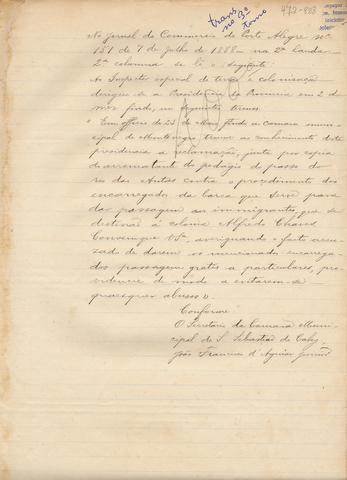 trans
no 3º
tomo
472-803
No Jornal do Commercio de Porto Alegre nº
151 de 7 de julho de 1888 na 2ª lauda
2ª columna se lê o seguinte:
Ao Inspector especial de terras e colonisação
dirigiu-se a Presidencia da Provincia em 2 do
mez findo, nos seguintes termos.
"Em officio de 23 de Maio findo a camara muni-
cipal de Montenegro trouxe ao conhecimento desta
presidencia a reclamação, junta por copia
do arrematante do pedagio do passo do
rio das Antas contra o procedimento dos
encarregados da barca que serve para
dar passagem aos immigrantes, que se
destinão á colonia Alfredo Chaves
Convem que Vsª, averiguando o facto accu-
sado de darem os mencionados encarrega-
dos passagem gratis a particulares, pro-
videncie de modo a evitarem-se
quaesquer abusos".
Conforme
O Secretario da Camara Muni-
cipal de S. Sebastião do Cahy
João Francisco d'Aguiar